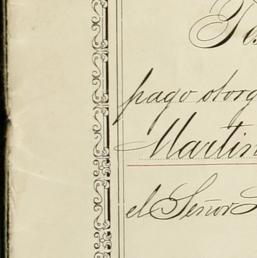 pago otorg
Martin
el Señor